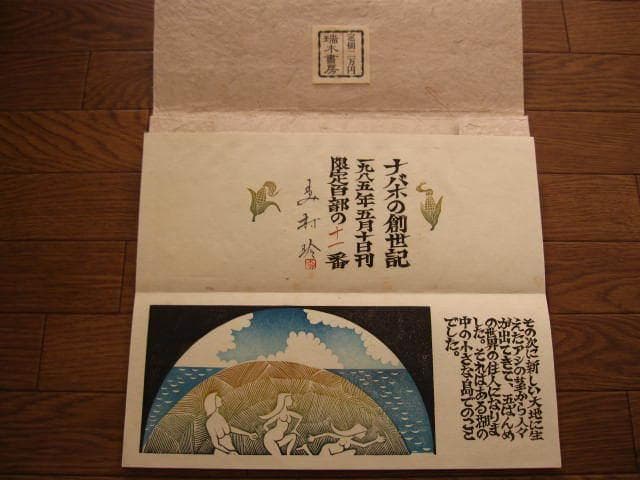 定価二万円
瑞木書房
ナバホの創世記
一九八五年五月十日刊
限定百部の十一番
その次に新しい大地に生
えたアシの茎から人々
が出てきて、五ばんめ
の世界の住人になりま
した。それはある湖の
中の小さな島でのこと
でした。